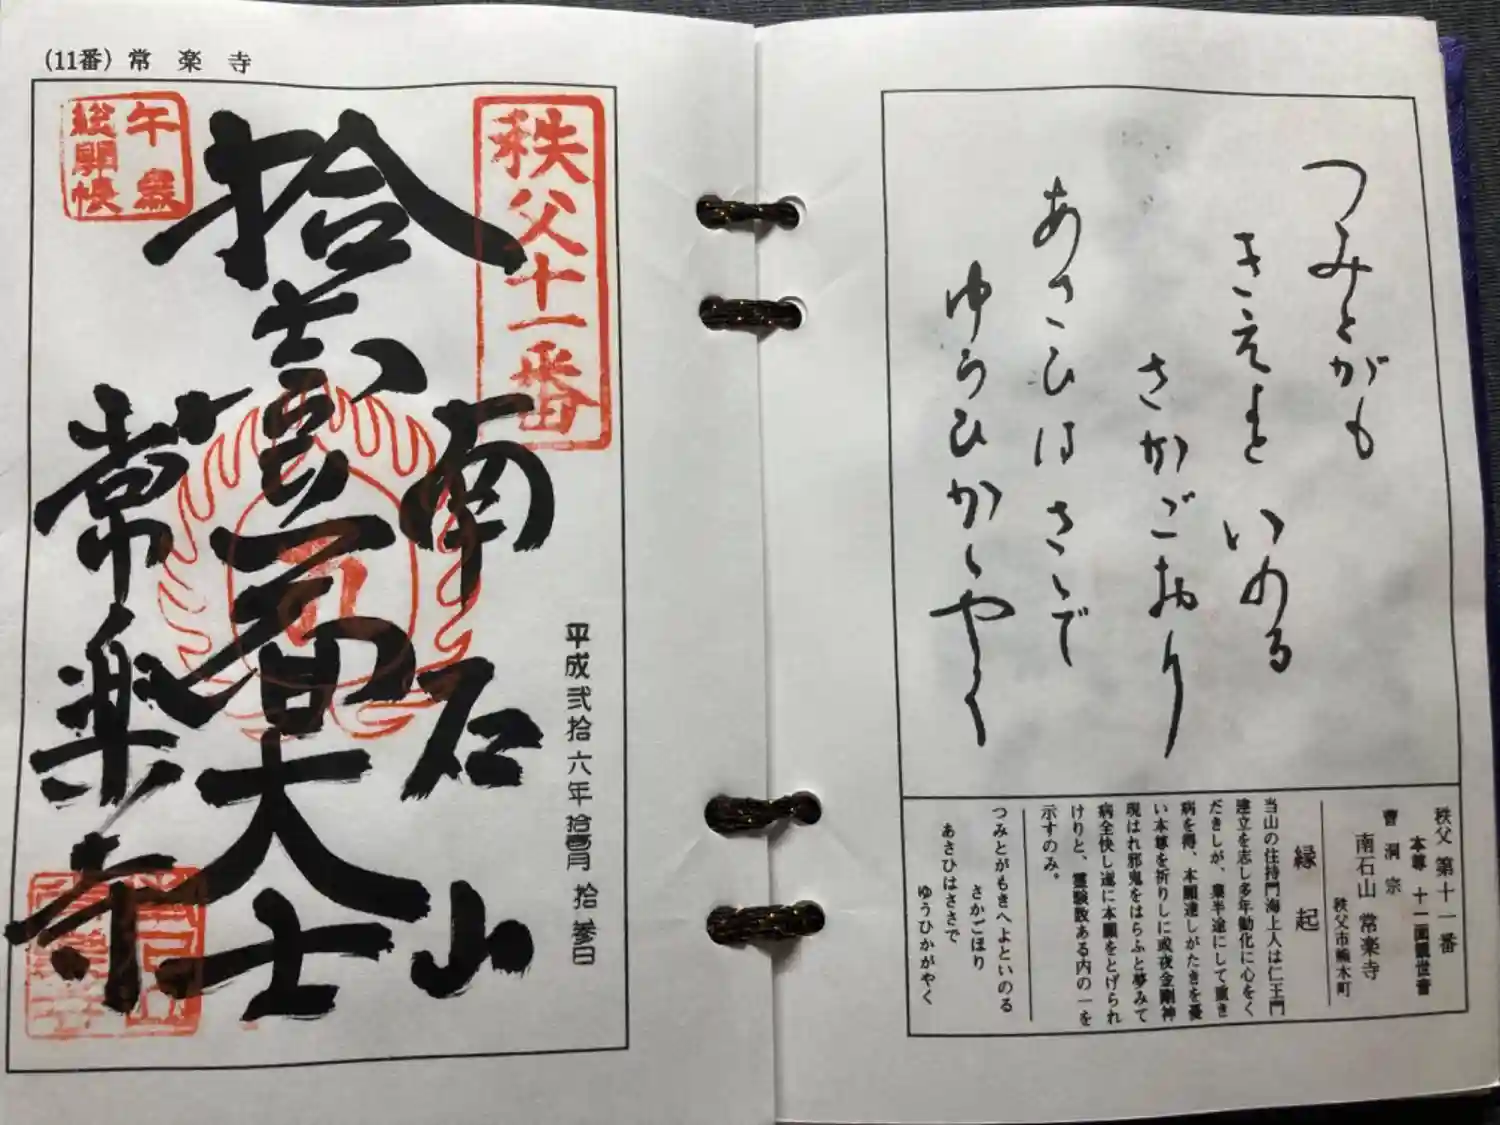 (11番) 常楽寺
午歳
総開帳
秩父十一番
南石山
拾壹面大士
常楽寺
平成弐拾六年拾壹月拾参日
つみとがも
きえよと いのる
さかごおり
あさひはさゝで
ゆうひかゝやく
秩父 第十一番
本尊 十一面観世音
曹洞宗
南石山 常楽寺
秩父市熊木町
縁起
当山の住持門海上人は仁王門
建立を志し多年勧化に心をく
だきしが、業半途にして重き
病を得、本願達しがたきを憂
い本尊を祈りしに或夜金剛神
現はれ邪鬼をはらふと夢みて
病全快し遂に本願をとげられ
けりと、霊験数ある内の一を
示すのみ。
つみとがもきへよといのる
さかごほり
あさひはささで
ゆうひかがやく